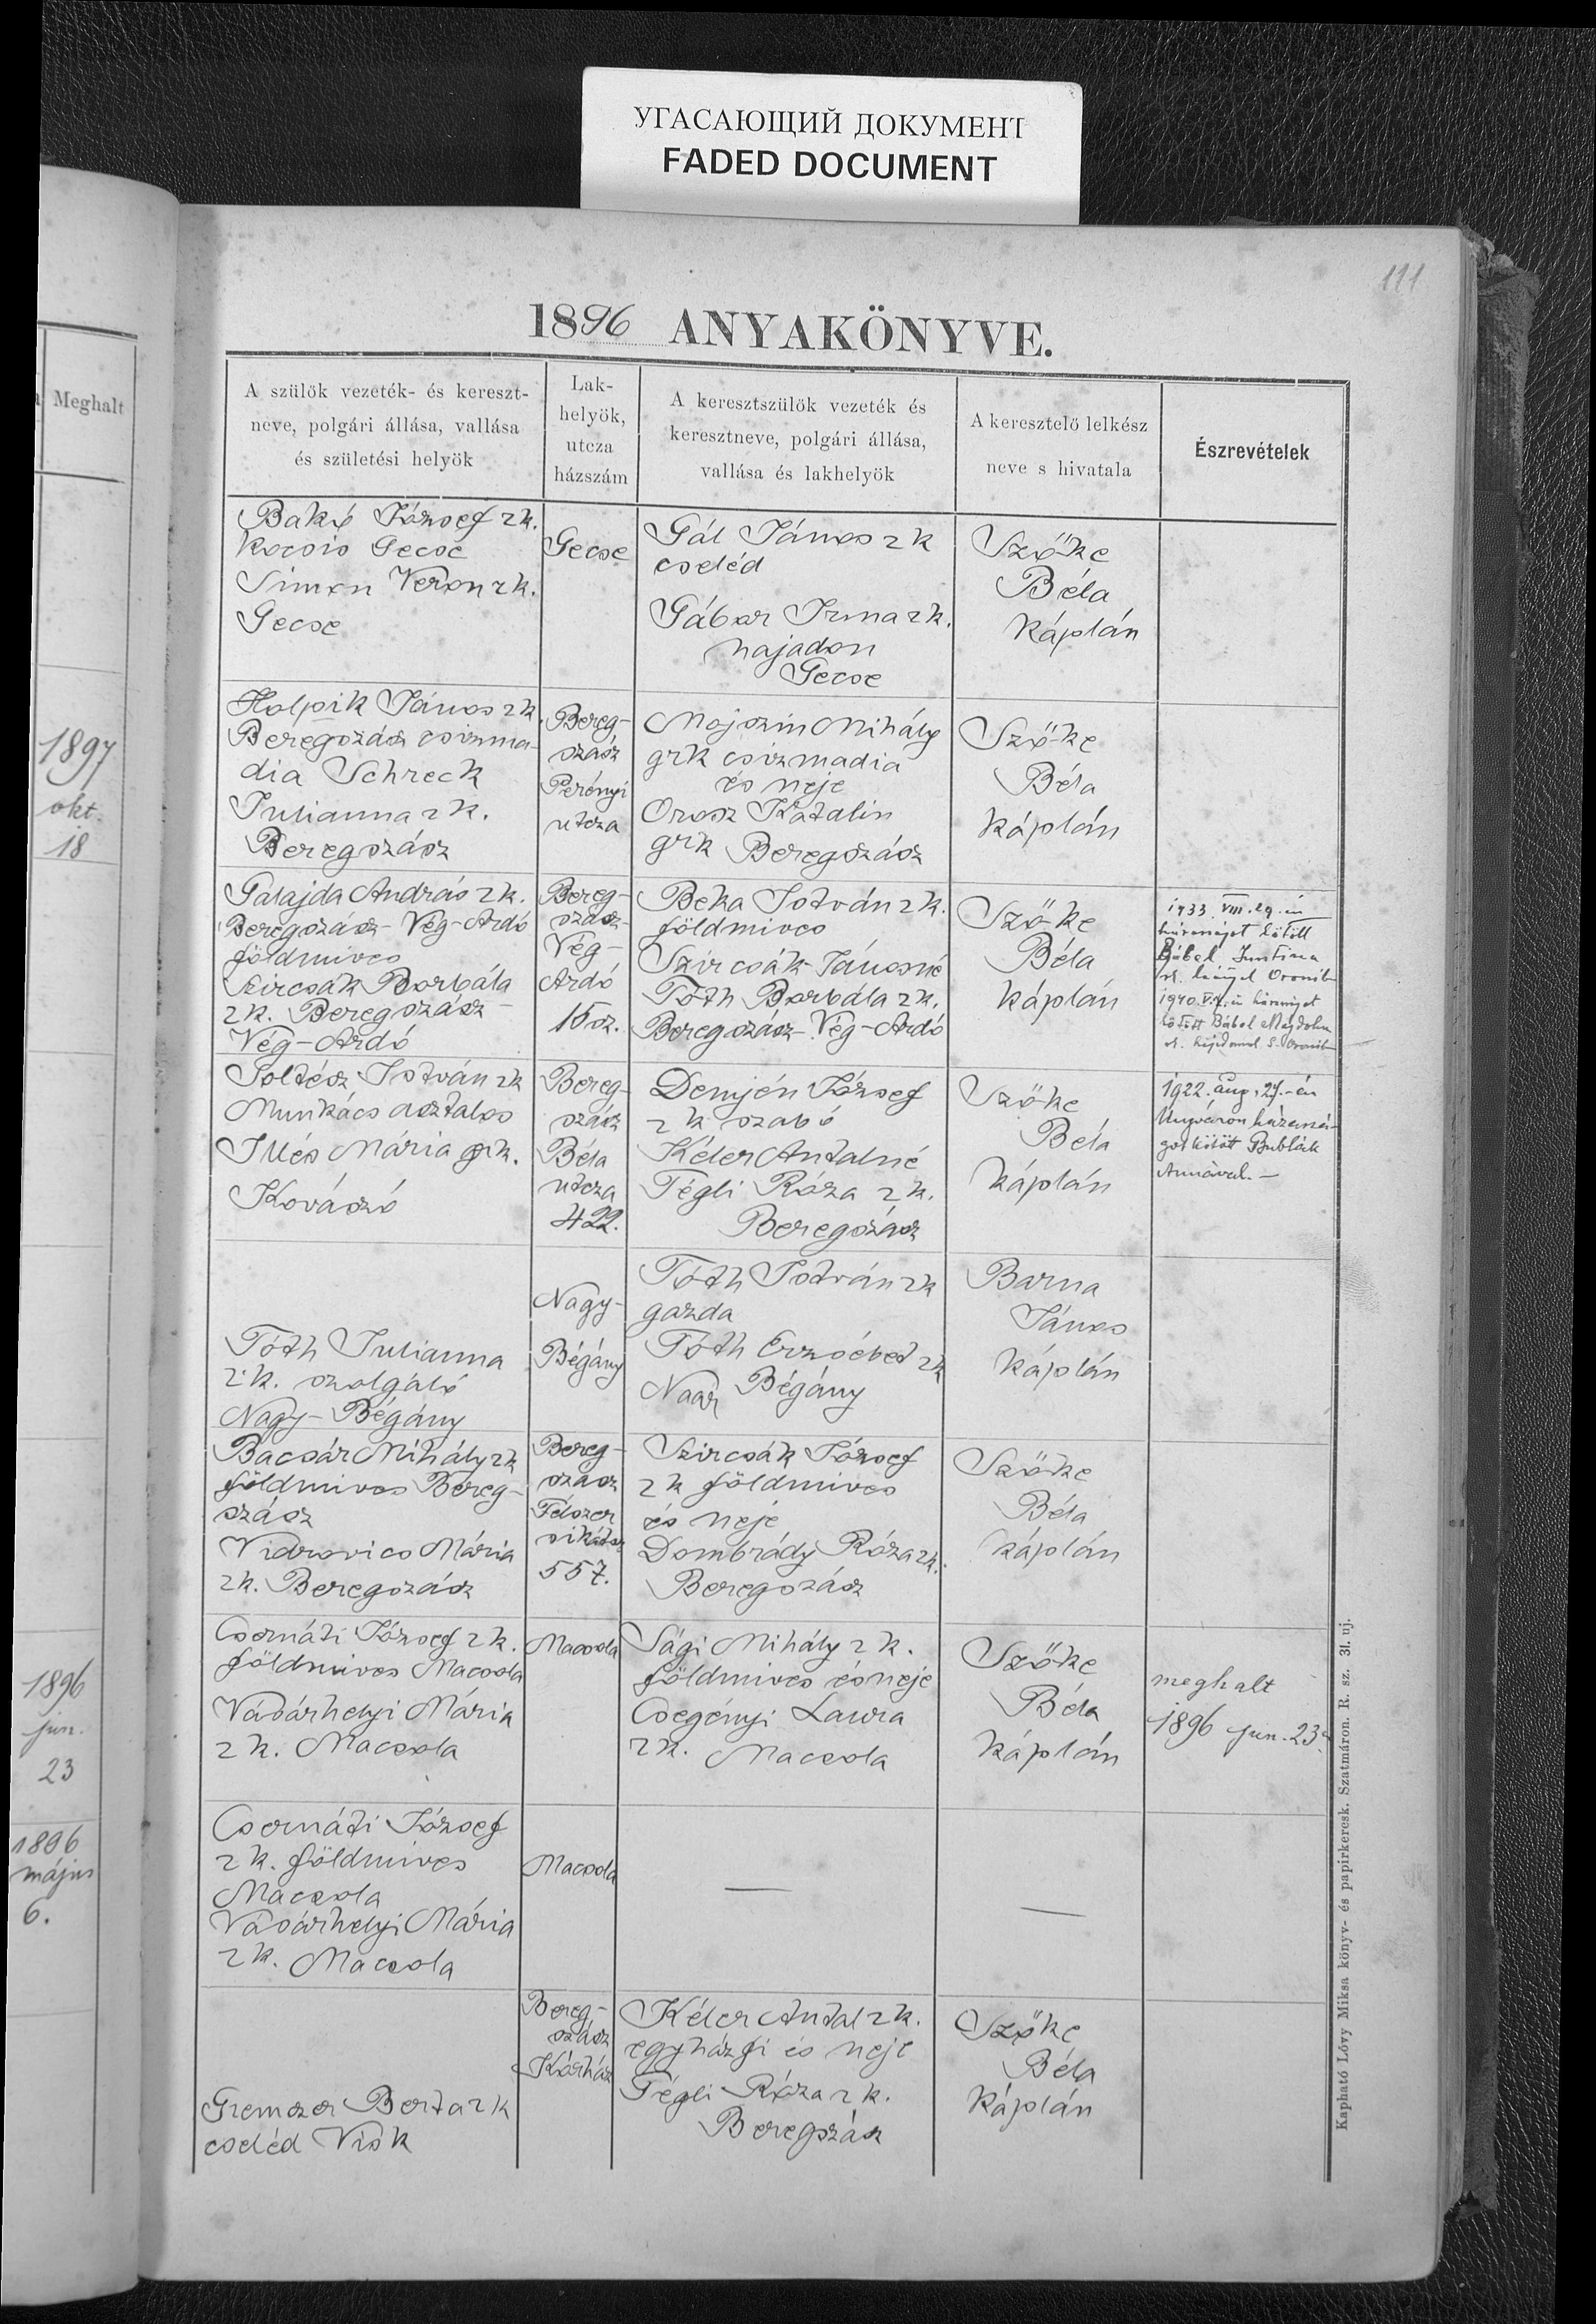 УГАСАЮЩИЙ ДОКУМЕНТ
FADED DOCUMENT
111
1896 ANYAKÖNYVE.
Meghalt
A szülök vezeték- és kereszt-
neve, polgári állása, vallása
és születési helyök
Lak-
helyök,
utcza
házszám
A keresztszülök vezeték és
keresztneve, polgári állása,
vallása és lakhelyök
A keresztelő lelkész
neve s hivatala
Észrevételek
Bakó József rk.
kocsis Gecse
Simon Veron rk.
Gecse
Gecse
Gál János rk
cseléd
Gábor Irma rk.
hajadon
Gecse
Szőke
Béla
káplán
1897
okt.
18
Holpik János rk.
Beregszász csizma-
dia Schreck
Julianna rk.
Beregszász
Bereg-
szász
Perényi
utcza
Mojszin Mihály
grk csizmadia
és neje
Orosz Katalin
grk Beregszász
Szőke
Béla
káplán
Galajda András rk.
Beregszász-Vég-Ardó
földmives
Szircsák Borbála
rk. Beregszász-
Vég-Ardó
Bereg-
szász-
Vég-
Ardó
15 sz.
Beka István rk.
földmives
Szircsák Jánosné
Tóth Borbála rk.
Beregszász-Vég-Ardó
Szőke
Béla
káplán
1933. VIII. 29. én
házasságot kötött
Bábel Justina
1940.
kötött Bábel
Soltész István rk
Munkács asztalos
Illés Mária grk.
Kovászó
Bereg-
szász
Béla
utcza
422.
Demjén József
rk szabó
Kéler Antalné
Tégli Róza rk.
Beregszász
Szőke
Béla
káplán
1922. aug. 27.-én
Ungváron házassá-
got kötött Bublák
Annával.-
Tóth Julianna
rk. szolgáló
Nagy-Bégány
Nagy-
Bégány
Tóth István rk
gazda
Tóth Erzsébet rk
Nagy Bégány
Barna
János
káplán
Bacsár Mihály rk
földmives Bereg-
szász
Vidrovics Mária
rk. Beregszász
Bereg-
szász
Félszer
sikátor
557.
Szircsák József
rk földmives
és neje
Dombrády Róza rk.
Beregszász
Szőke
Béla
káplán
1896
jun.
23
Csernáti József rk.
földmives Macsola
Vásárhelyi Mária
rk. Macsola
Macsola
Sági Mihály rk.
földmives és neje
Csegényi Laura
rk. Macsola
Szőke
Béla
káplán
meghalt
1896 jun. 23.
1896
május
6.
Csernáti József
rk. földmives
Macsola
Vásárhelyi Mária
rk. Macsola
Macsola
—
—
Gremszer Berta rk
cseléd Visk
Bereg-
szász
Kórház
Kéler Antal rk.
egyházfi és neje
Tégli Róza rk.
Beregszász
Szőke
Béla
káplán
Kapható Lővy Miksa könyv- és papirkeresk. Szatmáron. R. sz. 3l. uj.